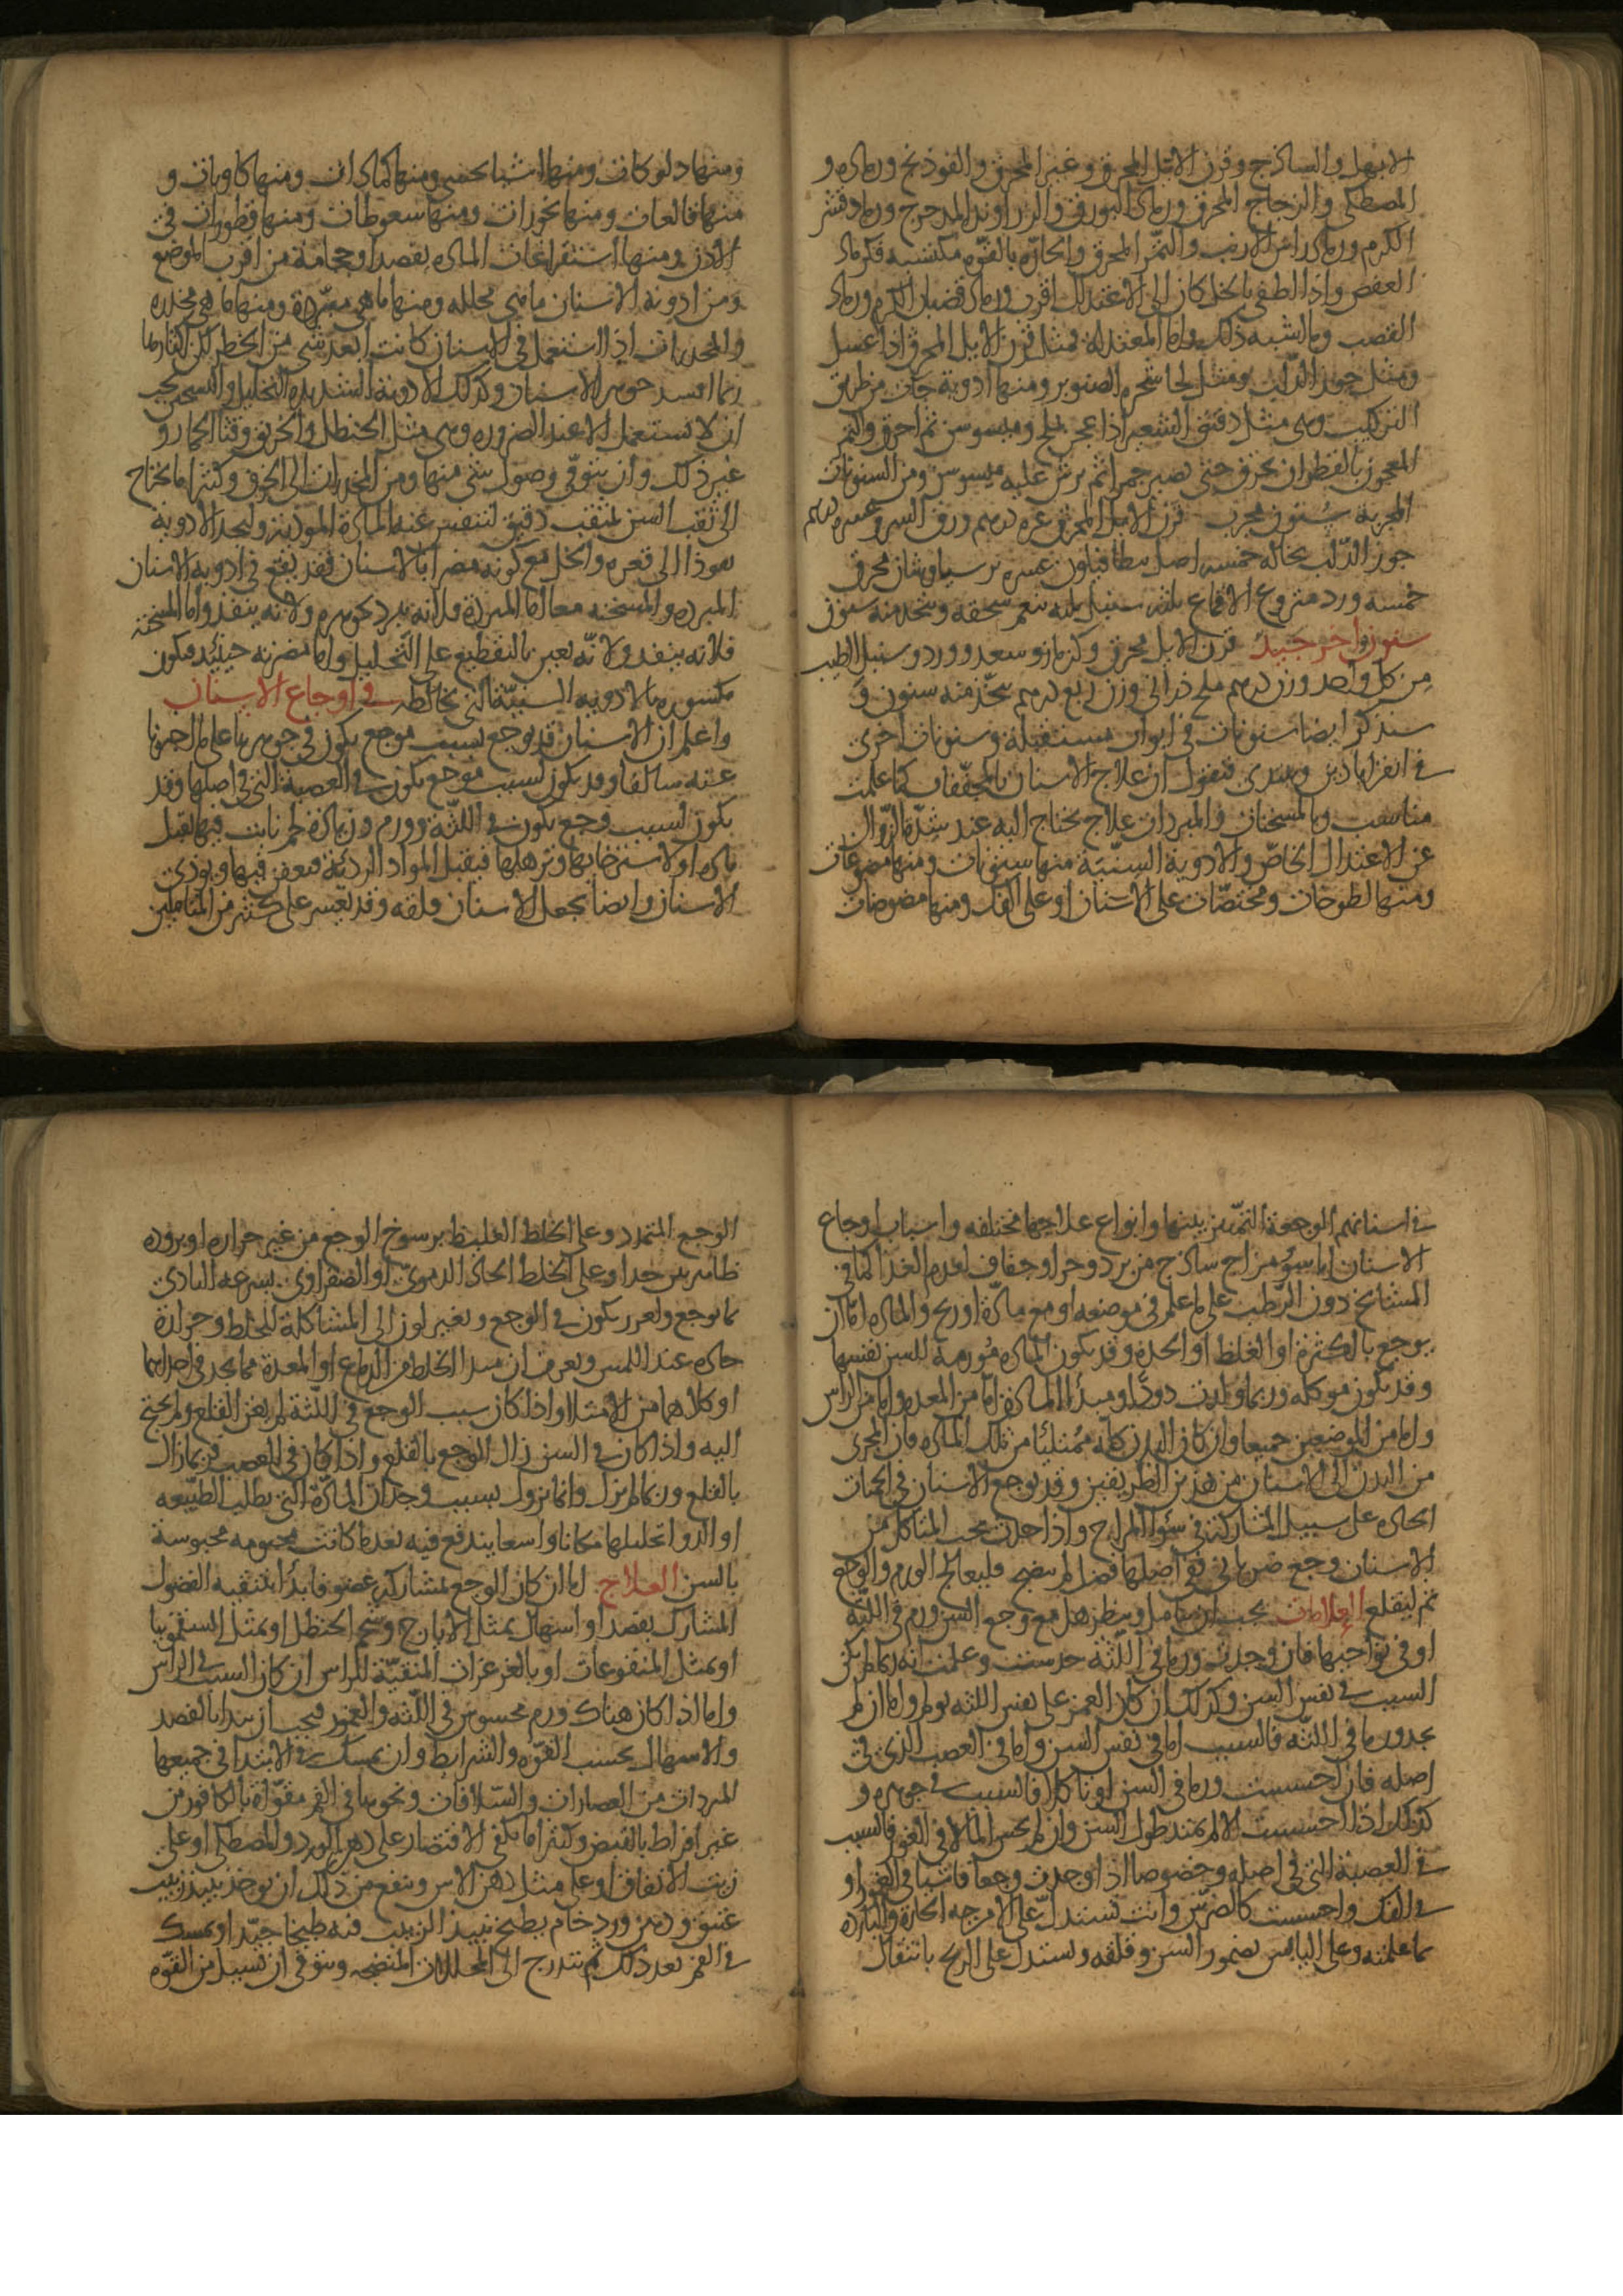 الابهل والساذج وقرن الايل المحرق وغير المحرق والفوذنج ورماده و
المصطكي والزجاج المحرق ورماد البورق والزراوند المدحرج ورماد قشر
الكرم ورماد راس الارنب والتمر المحرق والحارة بالقوة مكتسبة فكرماد
العفص واذا اطفي بالخل كان الى الاعتدال اقرب ورماد قضبان الكرم ورماد
القصب وما اشبه ذلك واما المعتدلة فمثل قرن الايل المحرق اذا غسل
ومثل جوز الدلب ومثل لحا شجره الصنوبر ومنها ادوية جات من طريق
التركيب وهي مثل دقيق الشعير اذا عجن بملح وميسوس ثم احرق والتمر
المعجون بالقطران يحرق حتى يصير جمرا ثم يرش عليه ميسوس ومن السنونات
المجربة سنون مجرب قرن الايل المحرق عشره درهم ورق السرو عشره درهم
جوز الدلب بحاله خمسه اصل بنطافيلون عشره برسياوشان محرق
خمسه ورد منزوع الاقماع ثلثه سنبل ثلثه ينعم سحقه ويتخذ منه سنون
سنون اخر جيد قرن الايل محرق وكزمازو وسعد وورد وسنبل الطيب
من كل واحد وزن درهم ملح دراني وزن ربع درهم يتخذ منه سنون و
سنذكر ايضا سنونات في ابواب مستقبلة وسنونات اخرى
في القراباذين وهدى فنقول ان علاج الاسنان بالمجففات كما علمت
مناسب وبالمسخنات والمبردات علاج يحتاج اليه عند شدة الزوال
عن الاعتدال الخاص والادوية السنية منها سنونات ومنها مضوغات
ومنها لطوخات ومختصات على الاسنان او على الفك ومنها مضوضات
ومنها دلوكات ومنها اشيا تحشى ومنها كمادات ومنها كاويات و
منها قالعات ومنها بخورات ومنها سعوطات ومنها قطورات في
الاذن ومنها استفراغات الماده بفصد او حجامة من اقرب المواضع
ومن ادوية الاسنان ما هي محلله ومنها ما هي مبردة ومنها ما هي مخدره
والمخدرات اذا استعمل في الاسنان كانت ابعد شي من الخطر لكن اكثارها
ربما افسد جوهر الاسنان وكذلك الادوية الشديدة التحليل والتسخين يجب
ان لا تستعمل الا عند الضروره وهي مثل الحنظل والخربق وقثا الحمار و
غير ذلك وان يتوقى وصول شي منها ومن المخدرات الى الجوف وكثيرا ما يحتاج
الى ثقب السن بمثقب دقيق لتنفس عنه المادة الموذيه ولتجد الادوية
نفوذا الى قعره والخل مع كونه مضرا بالاسنان فقد يقع في ادويه الاسنان
المبرده والمسخنه معا اما المبردة فلانه يبرد بجوهره ولانه ينفذ واما المسخنه
فلانه ينفذ ولانه يعين بالتقطيع على التحليل واما مضرته حينئذ فتكون
مكسوره بالادويه السنية التي تخالطه في اوجاع الاسنان
واعلم ان الاسنان قد توجع بسبب موجع يكون في جوهرها على ما اخبرنا
عنه سالفا وقد يكون لسبب موجع يكون في العصبة التي في اصلها وقد
يكون لسبب وجع يكون في اللثة وورم وزيادة لحم نابت فيها يقبل
مادة او لاسترخايها وترهلها فيقبل المواد الردئة فيعفن فيها ويوذي
الاسنان وايضا يجعل الاسنان قلقه وقد تعسر على كثير من المتاملين
في اسنانهم الوجعة التمييز بينها وانواع علاجها مختلفه واسباب اوجاع
الاسنان اما سو مزاج ساذج من برد وحر او جفاف لعدم الغذا كما في
المشايخ دون الرطب على ما علم في موضعه او مع مادة او ريح والماده اما ان
يوجع بالكثرة او الغلظ او الحدة وقد يكون الماده مورمة للسن نفسها
وقد يكون موكله وربما ولدت دودا ومبدا الماده اما من المعده واما من الراس
واما من الموضعين جميعا وان كان البدن كله ممتليا من تلك الماده فان المجرى
من البدن الى الاسنان من هذين الطريقين وقد توجع الاسنان في الحميات
الحاده على سبيل المشاركة في سوء المزاج واذا حدث تحت المتاكل من
الاسنان وجع ضرباني ففي اصلها فضل لم ينضج فليعالج الورم والوجع
ثم ليقلع العلامات يجب ان يتامل وينظر هل مع وجع السن ورم في اللثة
او في نواحيها فان وجدت ورما في اللثة حدست وعلمت انه ربما لم يكن
السبب في نفس السن وكذلك ان كان الغمز على نفس اللثه يولم واما ان لم
يجد ورما في اللثه فالسبب اما في نفس السن واما في العصب الذي في
اصله فان احسست ورما في السن او تاكلا فالسبب في جوهره و
كذلك اذا احسست الالم يمتد طول السن وان لم يحس الما الا في الغور فالسبب
في العصبة التي في اصله وخصوصا اذا وجدت وجعا فاشيا في الغور او
في الفك واحسست كالضرس وانت تستدل على الامزجه الحارة والبارده
بما علمته وعلى اليابس بضمور السن وقلقه وتستدل على الريح بانتقال
الوجع المتمدد وعلى الخلط الغليظ برسوخ الوجع من غير حراره او بروده
ظاهرين جدا وعلى الخلط الحاد الدموي او الصفراوي بسرعه التاذي
بما يوجع وبغرز يكون في الوجع وتغير لون الى المشاكلة للخلط وحرارة
حاده عند اللمس ويعرف ان مبدا الخلط من الدماغ او المعدة مما يجد في احدهما
او كلاهما من الامتلا واذا كان سبب الوجع في اللثة لم يغن القلع ولم يحتج
اليه واذا كان في السن زال الوجع بالقلع واذا كان في العصب فربما زال
بالقلع وربما لم يزل وانما يزول بسبب وجدان المادة التي يطلب الطبيعه
او الدوا تحليلها مكانا واسعا يندفع فيه بعد ما كانت محبوسة
بالسن العلاج اما ان كان الوجع بمشاركة عضو فابدا بتنقيه العضو
المشارك بفصد او اسهال بمثل الايارج وشحم الحنظل او بمثل السقمونيا
او بمثل المنقوعات او بالغرغرات المنقية للراس ان كان السبب في الراس
واما اذا كان هناك ورم محسوس في اللثه والعمور فيجب ان يبدا بالفصد
والاسهال بحسب القوه والشرايط وان يمسك في الابتدا في جميعها
المبردات من العصارات والسلاقات ونحوها في الفم مقواة بالكافور من
غير افراط بالقبض وكثيرا ما يكفي الاقتصار على دهن الورد والمصطكي او على
زيت الانفاق او على مثل دهن الاس وينفع من ذلك ان يوخذ نبيذ زبيب
عتيق ودهن ورد خام يطبخ نبيذ الزبيب فيه طبخا جيدا ويمسك
في الفم بعد ذلك ثم يتدرج الى المحللات المنضجه ويتوقى ان يسيل من القوه